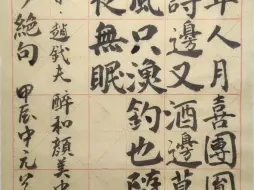 年人月喜團圓
詩邊又酒邊莫
風只漁釣也隨
夜無眠
趙鉞夫 醉和顏美中
絕句 甲辰中元